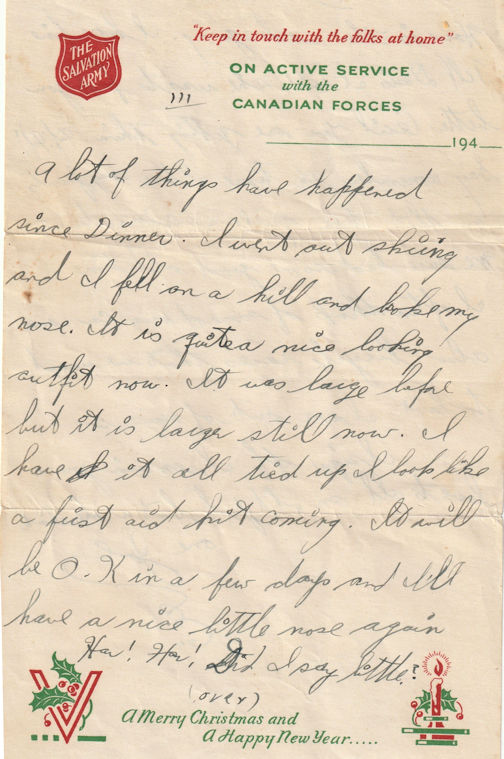 "Keep in touch with the folks at home"
THE
SALVATION
ARMY
ON ACTIVE SERVICE
with the
CANADIAN FORCES
111
194
A lot of things have happened
since Dinner. I went out skiing
and I fell on a hill and broke my
nose. It is quite a nice looking
outfit now. It was large before
but it is larger still now. I
have it all tied up I look like
a first aid kit coming. It will
be O.K in a few days and I'll
have a nice little nose again
Ha! Ha! Did I say little?
(over)
A Merry Christmas and
A Happy New Year.....